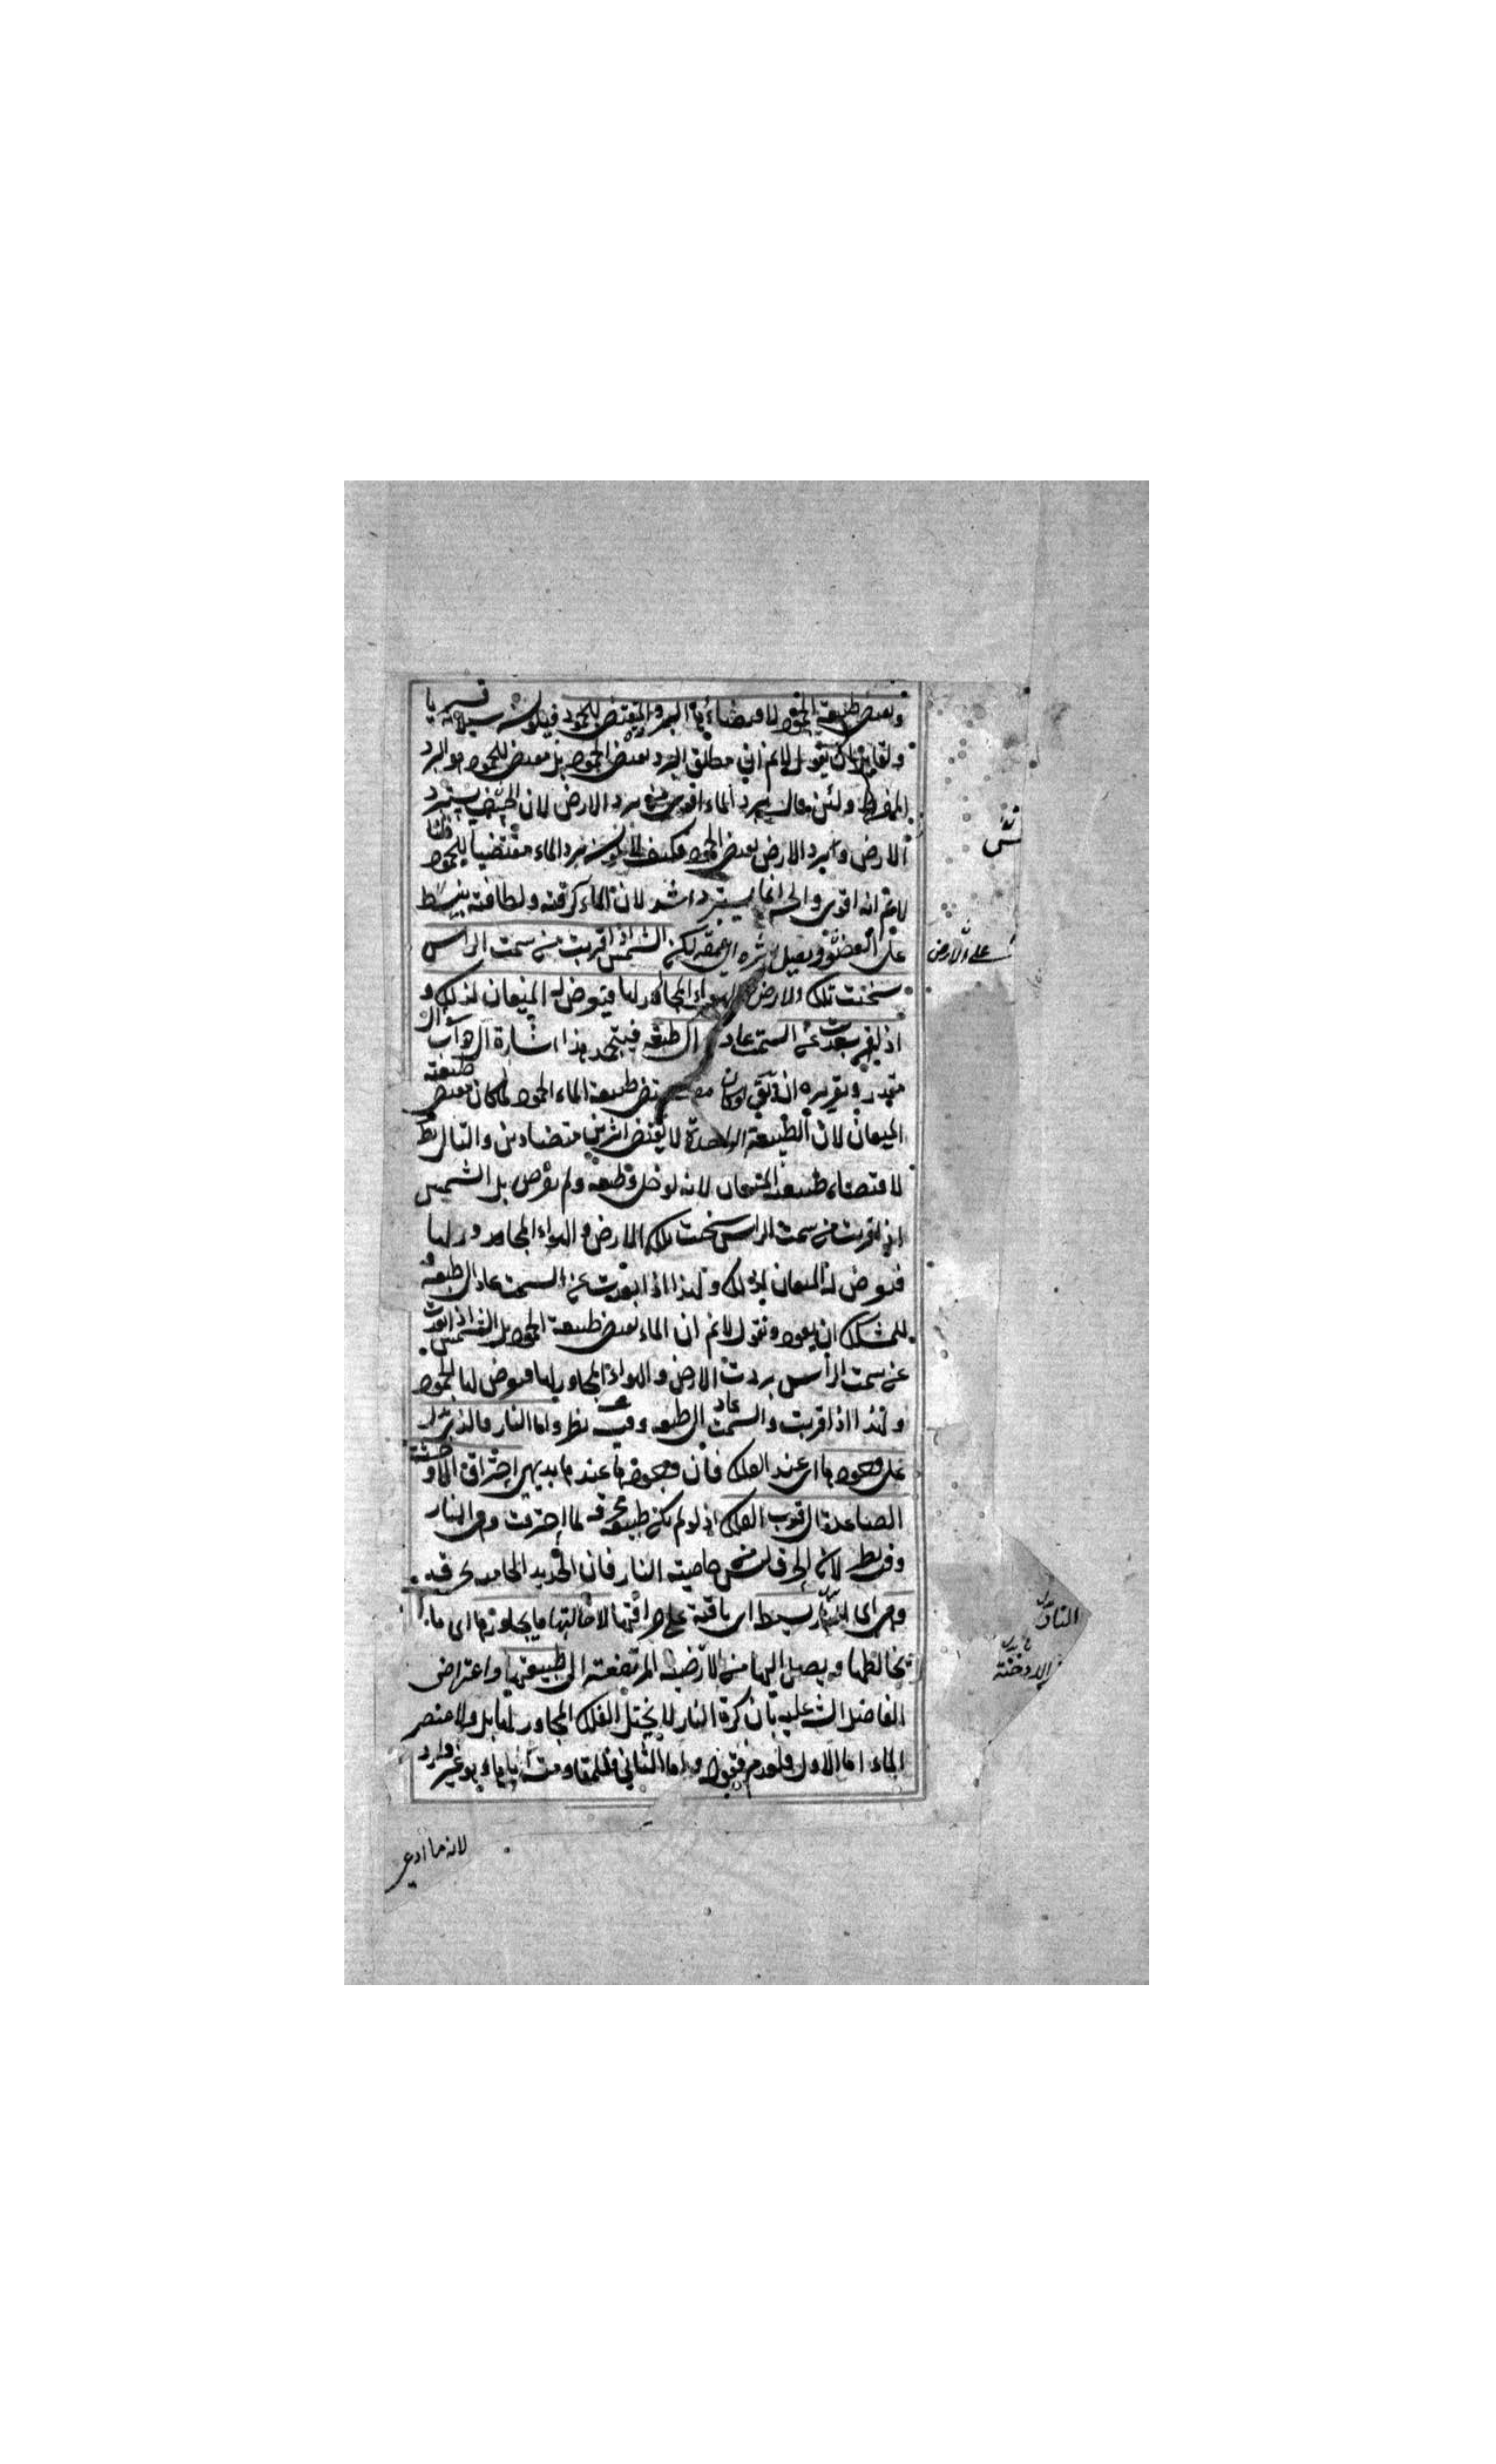 وتقتضي طبيعته الجمود لاقتضائها البرد المقتضي للجمود فيكون سيلانه قسريا
ولقائل ان يقول لانم ان مطلق البرد يقتضي الجمود بل مقتضي للجمود هو البرد
المفرط ولئن قال برد الماء اقوى من برد الارض لان الحس يستبرد
الارض وبرد الارض يقتضي الجمود فكيف لا يكون برد الماء مقتضيا للجمود قلنا
لانم انه اقوى والحس انما يستبرد اشد لان الماء لرقته ولطافته ينبسط
على العضو ويصل اثره الى عمقه لكن الشمس اذا قربت من سمت الراس
سخنت تلك الارض والهواء المجاور لها فيعرض له الميعان لذلك و
اذا بعدت عن السمت عاد الى طبعه فيتجمد هذا اشارة الى جواب سؤال
مقدر وتقريره ان يقال لو كان مقتضى طبيعة الماء الجمود لما كان مقتضى طبيعته
الميعان لان الطبيعة الواحدة لا يقتضي اثرين متضادين والتالي بط
لاقتضاء طبيعته الميعان لانه لو خلي وطبعه ولم يعرض بل الشمس
اذا قربت من سمت الراس سخنت تلك الارض والهواء المجاور لها
فيعرض له الميعان لذلك ولهذا اذا بعدت عن السمت عاد الى طبعه و
للمشكك ان يعود ونقول لانم ان الماء يقتضي طبيعته الجمود بل الشمس اذا بعدت
عن سمت الراس بردت الارض والهواء المجاور لها فيعرض لها الجمود
ولهذا اذا قربت والسمت عاد الى طبعه وفيه نظر واما النار فالذي يدل
على وجودها اي عند الفلك فان وجودها عندنا بديهي احتراق الادخنة
الصاعدة الى قرب الفلك اذ لو لم يكن طبيعة محرقة لما احترقت وهي النار
وفيه نظر لان الحرق ليس خاصية النار فان الحديد الحامية محرقة
وهي اي النار بسيط اي باقية على صرافتها لاحالتها ما يجاورها اي ما
يخالطها ويصل اليها من الارضية المرتفعة الى طبيعتها واعتراض
الفاضل الش عليه بان كرة النار لا يحيل الفلك المجاور لها بل ولا عنصر
الماء اما الاول فلعدم قبوله واما الثاني فلمقاومته اياها وهو غير وارد
لانه ما ادعى
على الارض
النار بدل
الادخنة